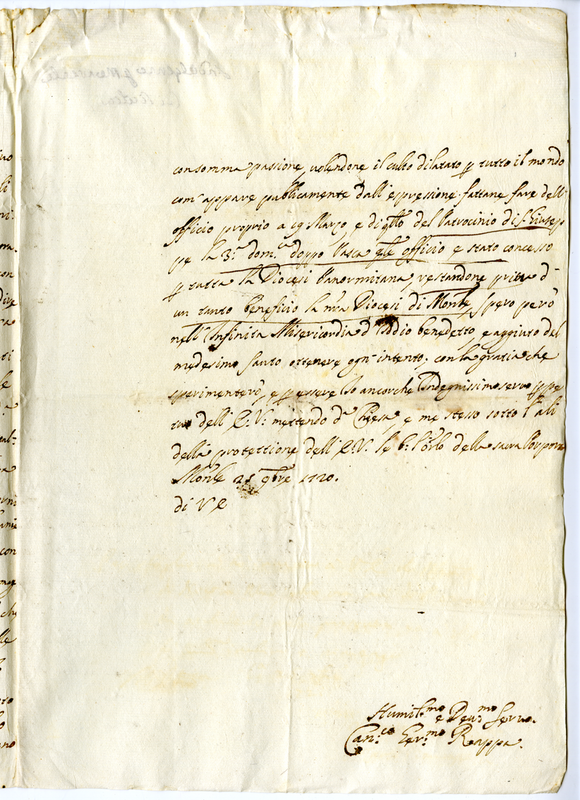 con somma passione uolendone il culto dilatato p tutto il mondo
com'appare publicamente dall'espressione fattane fare dell'
officio proprio a 19 Marzo, e di qllo del Patrocinio di S. Giusep
pe la 3.a dom.ca doppo Pasca qle officio e stato concesso
p tutta la Diocesi Panormitana restandone priua d'
un tanto beneficio la mia Diocesi di Monle, spero però
nell'Infinita Misericordia d'Iddio benedetto e aggiuto del
medesimo santo ottenere ogn'intento, con la gratia che
sperimenterò, e p essere Io ancorche Indegnissimo seruo
dell' E.V. mettendo d.a Chiesa e me stesso sotto l'ali
della protettione dell' E.V. le b. l'orlo della sacra Porpora
Monle 25 9bre 1720.
di V E
Humil.mo e Deu.mo Seruo.
Can.co Ger.mo Rappa.